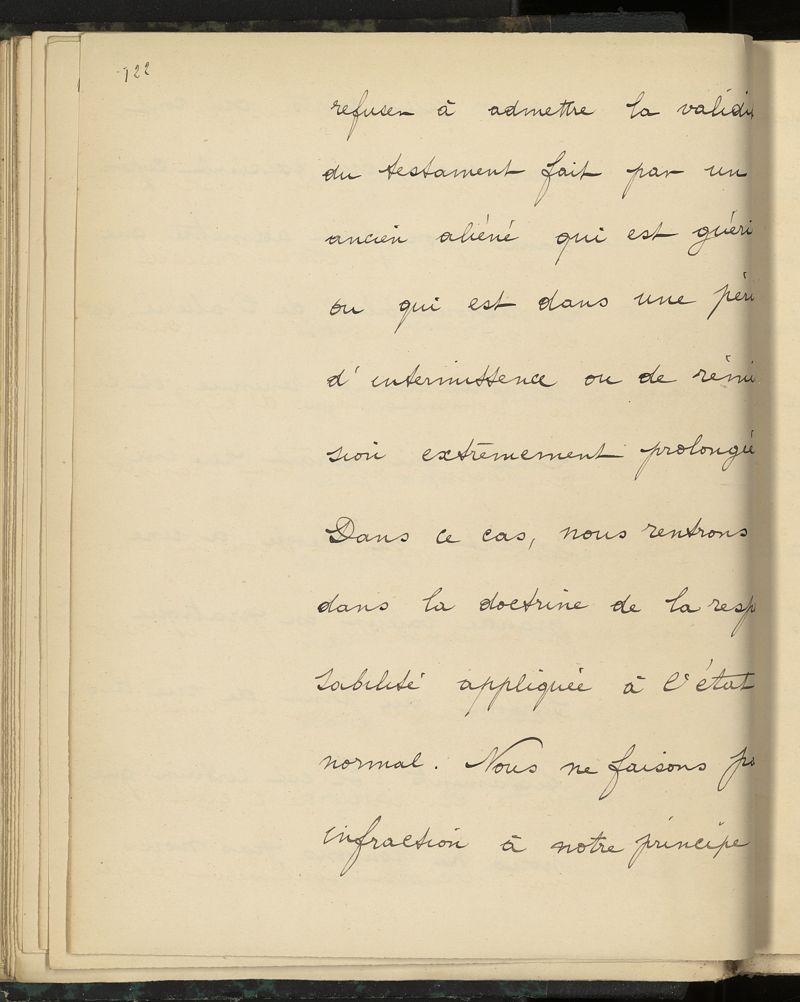 122
refuser à admettre la validi
du testament fait par un
ancien aliéné qui est guéri
ou qui est dans une péri
d'intermittence ou de rémi
sion extrêmement prolongée
Dans ce cas, nous rentrons
dans la doctrine de la resp
sabilité appliquée à l'état
normal. Nous ne faisons pa
infraction à notre principe